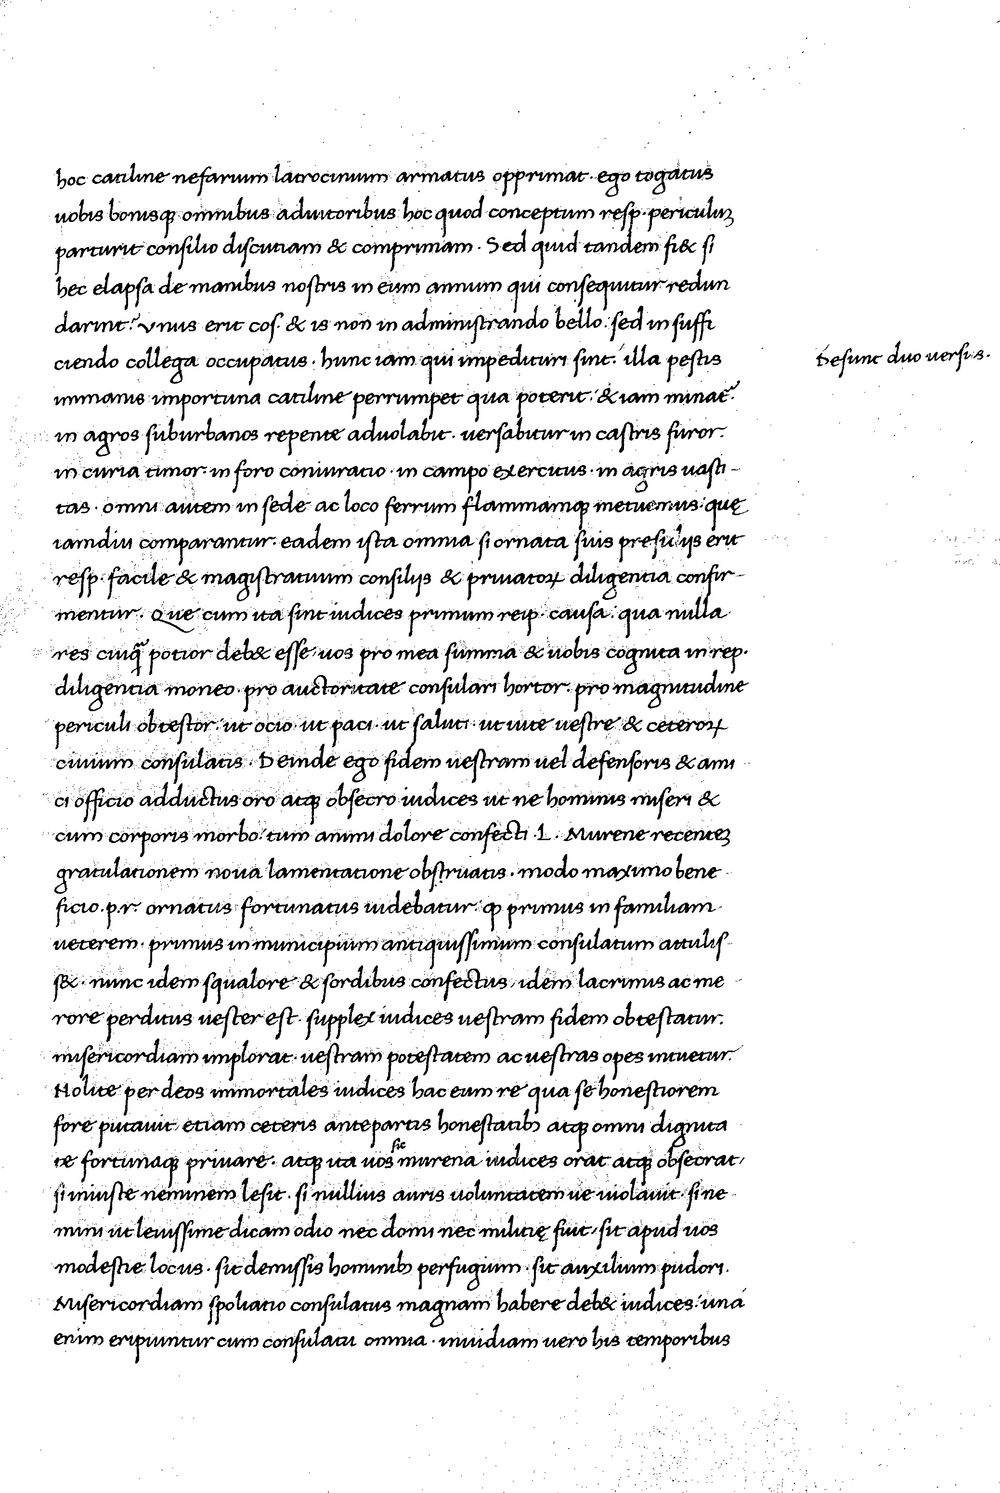 hoc catiline nefarium latrocinium armatus opprimat · ego togatus
uobis bonisq; omnibus adiutoribus hoc quod conceptum resp. periculuꝫ
parturit consilio discutiam & comprimam · Sed quid tandem fi& si
hec elapsa de manibus nostris in eum annum qui consequitur redun
darint? vnus erit cos. & is non in administrando bello. sed in suffi
ciendo collega occupatus · hunc iam qui impedituri sint. illa pestis
Desunt duo uersus.
immanis importuna catiline perrumpet qua poterit. & iam minat̃.
in agros suburbanos repente aduolabit · uersabitur in castris furor.
in curia timor. in foro coniuratio · in campo exercitus · in agris uasti-
tas · omni autem in sede ac loco ferrum flammamq; metuemus. quę
iamdiu comparantur. eadem ista omnia si ornata suis presidijs erit
resp. facile & magistratuum consilijs & priuatoꝝ diligentia confir-
mentur. Que cum ita sint iudices primum reip. causa. qua nulla
res cuiq̃ potior deb& esse. uos pro mea summa & uobis cognita in rep.
diligentia moneo. pro auctoritate consulari hortor. pro magnitudine
periculi obtestor. ut ocio. ut paci. ut saluti. ut uite uestre & ceteroꝝ
ciuium consulatis · Deinde ego fidem uestram uel defensoris & ami
ci officio adductus oro atq; obsecro iudices ut ne hominis miseri &
cum corporis morbo. tum animi dolore confecti · L · Murene recenteꝫ
gratulationem noua lamentatione obstruatis · modo maximo bene
ficio.p.r. ornatus fortunatus uidebatur. ꝙ primus in familiam
ueterem · primus in municipium antiquissimum consulatum attulis-
s& · nunc idem squalore & sordibus confectus, idem lacrimis ac me
rore perditus uester est. supplex iudices uestram fidem obtestatur.
misericordiam implorat. uestram potestatem ac uestras opes intuetur.
Nolite per deos immortales iudices hac eum re qua se honestiorem
fore putauit. etiam ceteris ante partis honestatib; atq; omni dignita
te fortunaq; priuare. atq; ita uos sic murena iudices orat atq; obsecrat,
si iniuste neminem lesit. si nullius auris uoluntatem ue uiolauit. si ne
mini ut leuissime dicam odio nec domi nec militię fuit, sit apud uos
modestie locus · sit demissis hominib; perfugium · sit auxilium pudori.
Misericordiam spoliatio consulatus magnam habere deb& iudices. una
enim eripiuntur cum consulatu omnia · inuidiam uero his temporibus